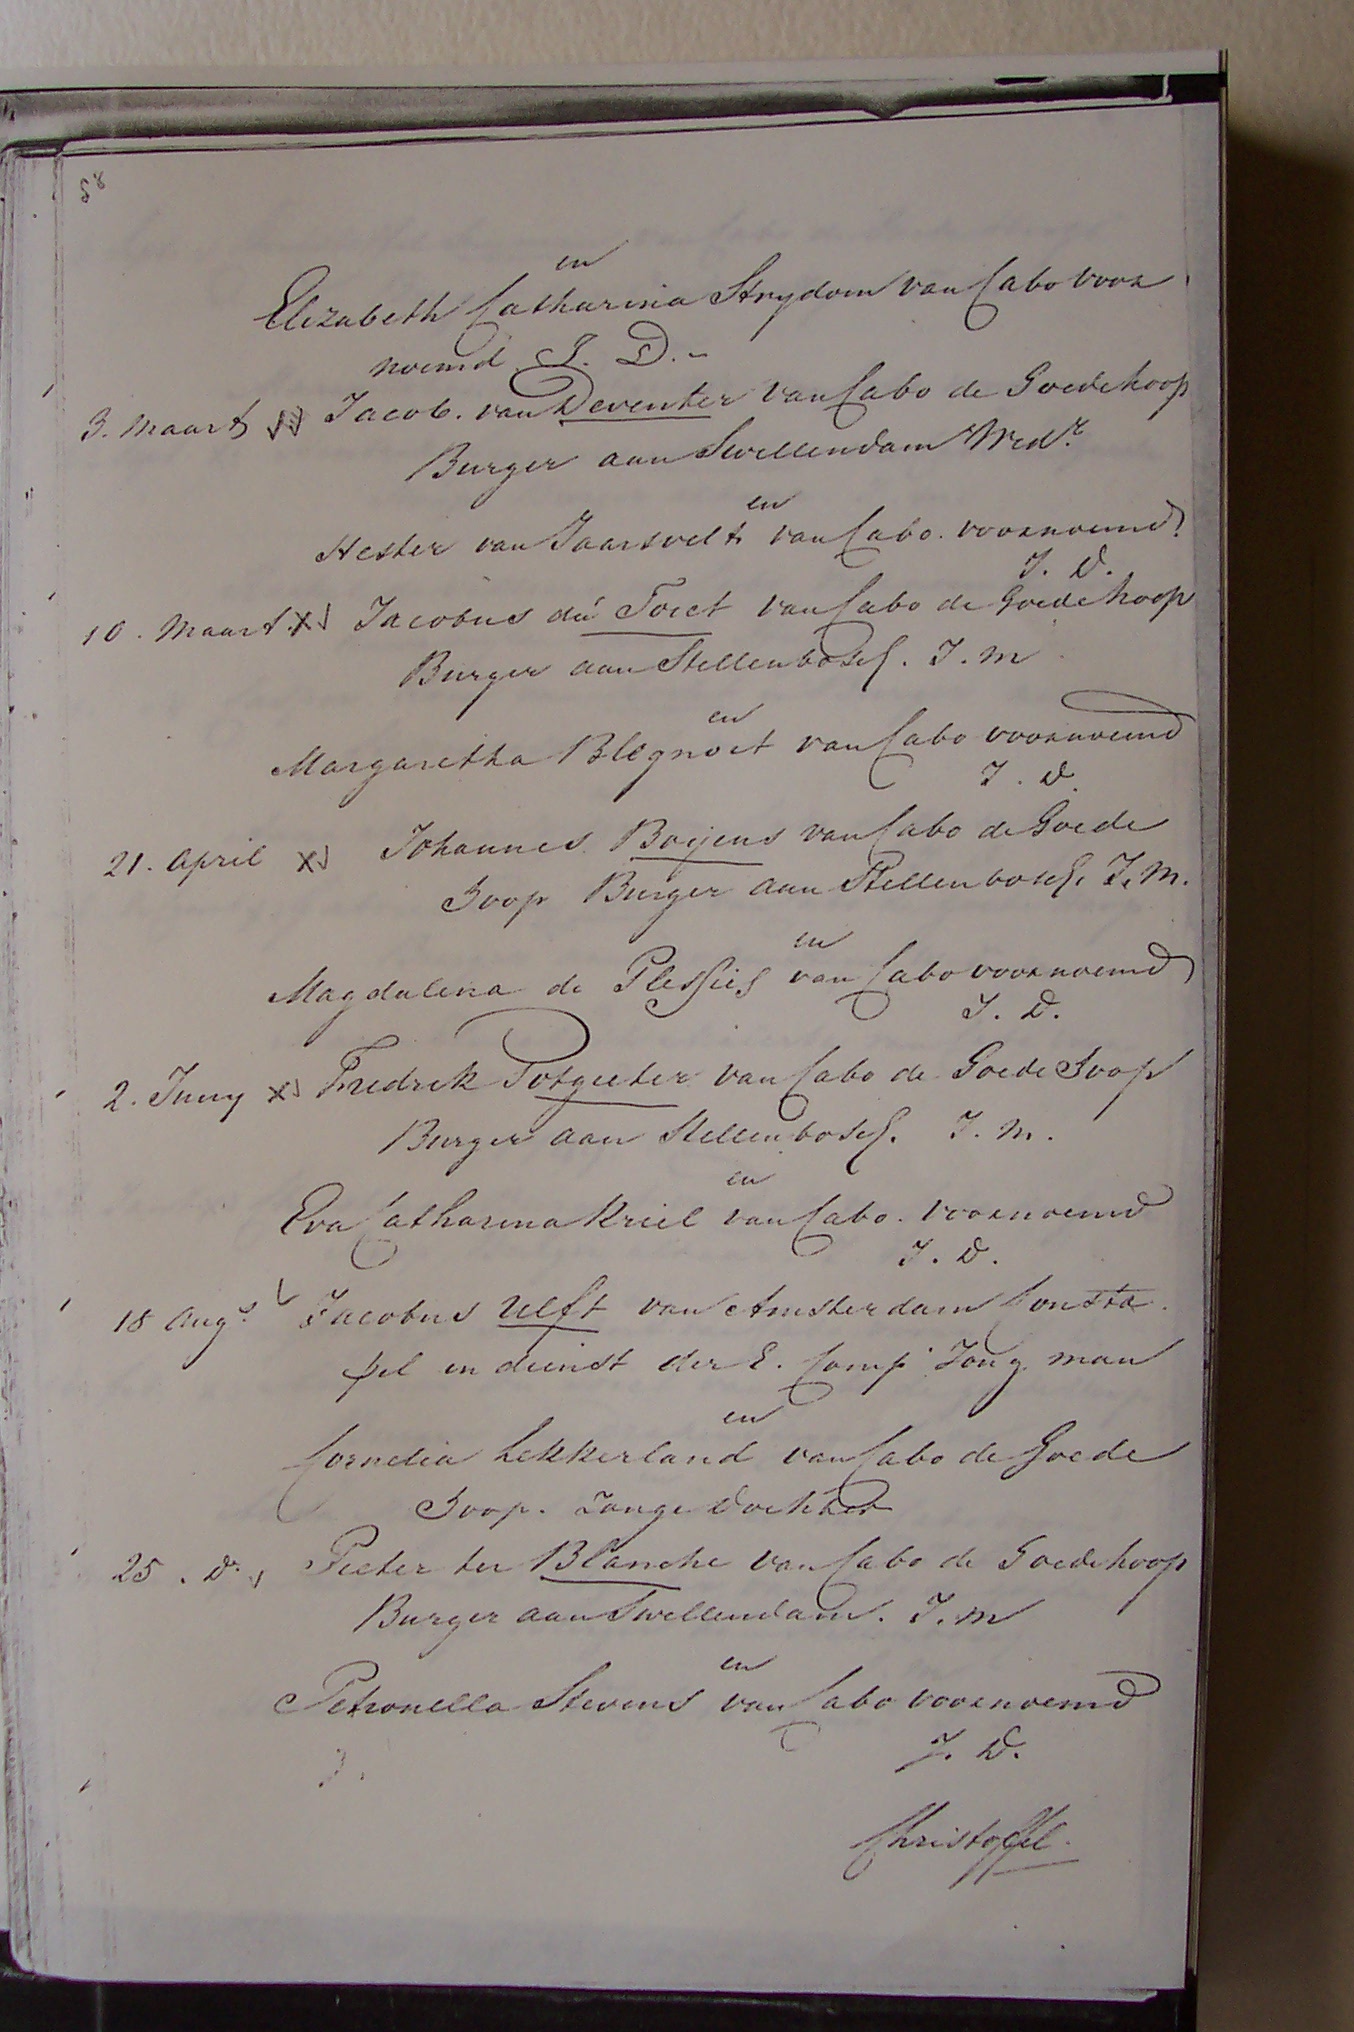 58
en
Elizabeth Catharina Strydom van Cabo voor
noemd J. D.
3. Maart Jacob. van Deventer van Cabo de Goede hoop
Burger aan Swellendam Wedr.
en
Hester van Jaarsveldt van Cabo. voornoemd
J. D.
10. Maart x Jacobus du Toict van Cabo de Goede hoop
Burger aan Stellenbosch. J. M
en
Margaretha Blegnoet van Cabo voornoemd
J. D.
21. April x Johannes Boijens van Cabo de Goede
Hoop Burger aan Stellenbosch. J. M.
en
Magdalena de Plessies van Cabo voornoemd
J. D.
2. Juny x Fredrik Potgieter van Cabo de Goede Hoop
Burger aan Stellenbosch. J. M.
en
Eva Catharina Kriel van Cabo. voornoemd
J. D.
18 Augs. Jacobus Ulft van Amsterdam Consta
pel in dienst der E. Comp Jong man
en
Cornelia Lekkerland van Cabo de Goede
Hoop. Jonge Dochter
25. Do. Pieter ter Blanche van Cabo de Goede hoop
Burger aan Swellendam. J. M
en
Petronella Stevens van Cabo voornoemd
J. D.
Christoffel